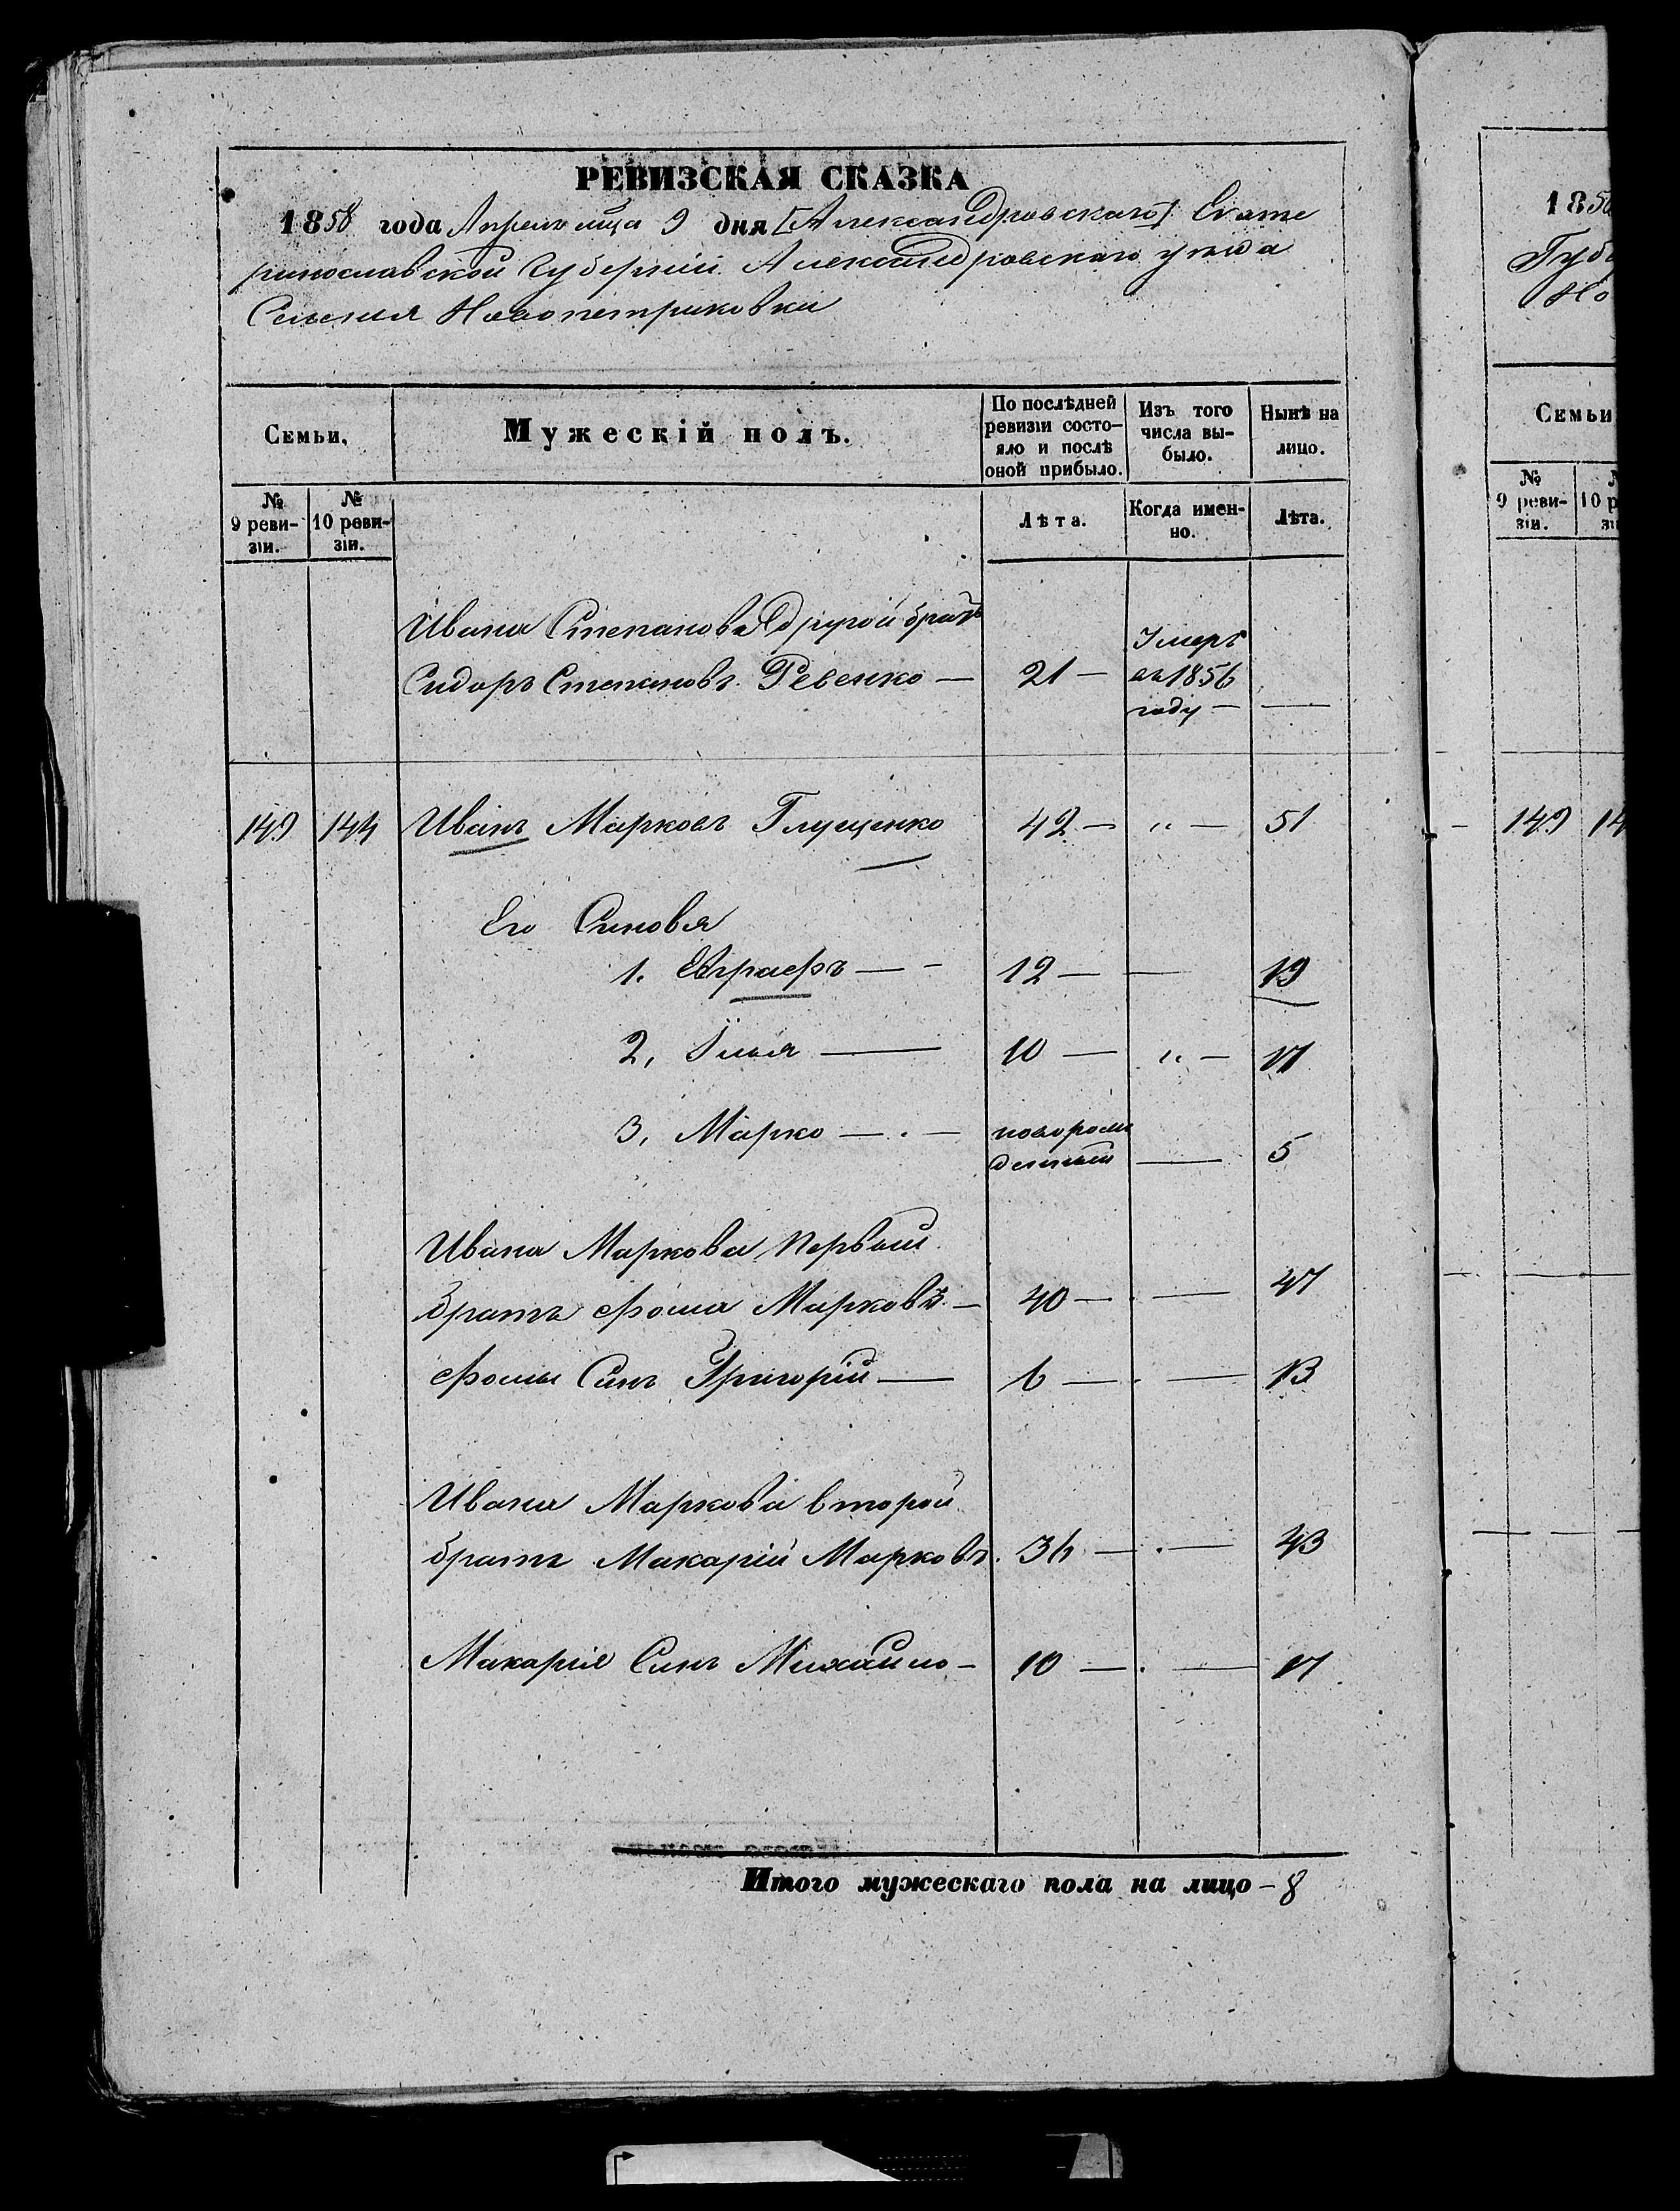 РЕВИЗСКАЯ СКАЗКА
1858 года Апреля мца 9 дня [Александровскаго] Екате
ринославской Губернии Александровскаго уезда
Селения Новопетриковки
Семьи.
Мужескій полъ.
По послѣдней ревизіи состо-
яло и послѣ
оной прибыло.
Изъ того
числа вы-
было.
Нынѣ на
лицо.
№
9 реви-
зіи.
№
10 реви-
зіи.
Лѣта.
Когда имен-
но.
Лѣта.
Ивана Степанова другой братъ
Сидоръ Степановъ Ревенко — 21 —
Умеръ
въ 1856
году —
149 144 Иванъ Марковъ Глущенко 42 — „ — 51
Его Синовья
1. Евграфъ — — 12 — — 19
2, Илья — 10 — „ — 17
3, Марко — . — новорож
денный — 5
Ивана Маркова первый
братъ Фома Марковъ — 40 — . — 47
Фомы Синъ Григорій — 6 — . — 13
Ивана Маркова второй
братъ Макарій Марковъ. 36 — . — 43
Макарія Синъ Михайло — 10 — . — 17
Итого мужескаго пола на лицо — 8
185
Губ
Но
Семьи
№
9 реви-
зіи.
10 р
зі
149 14